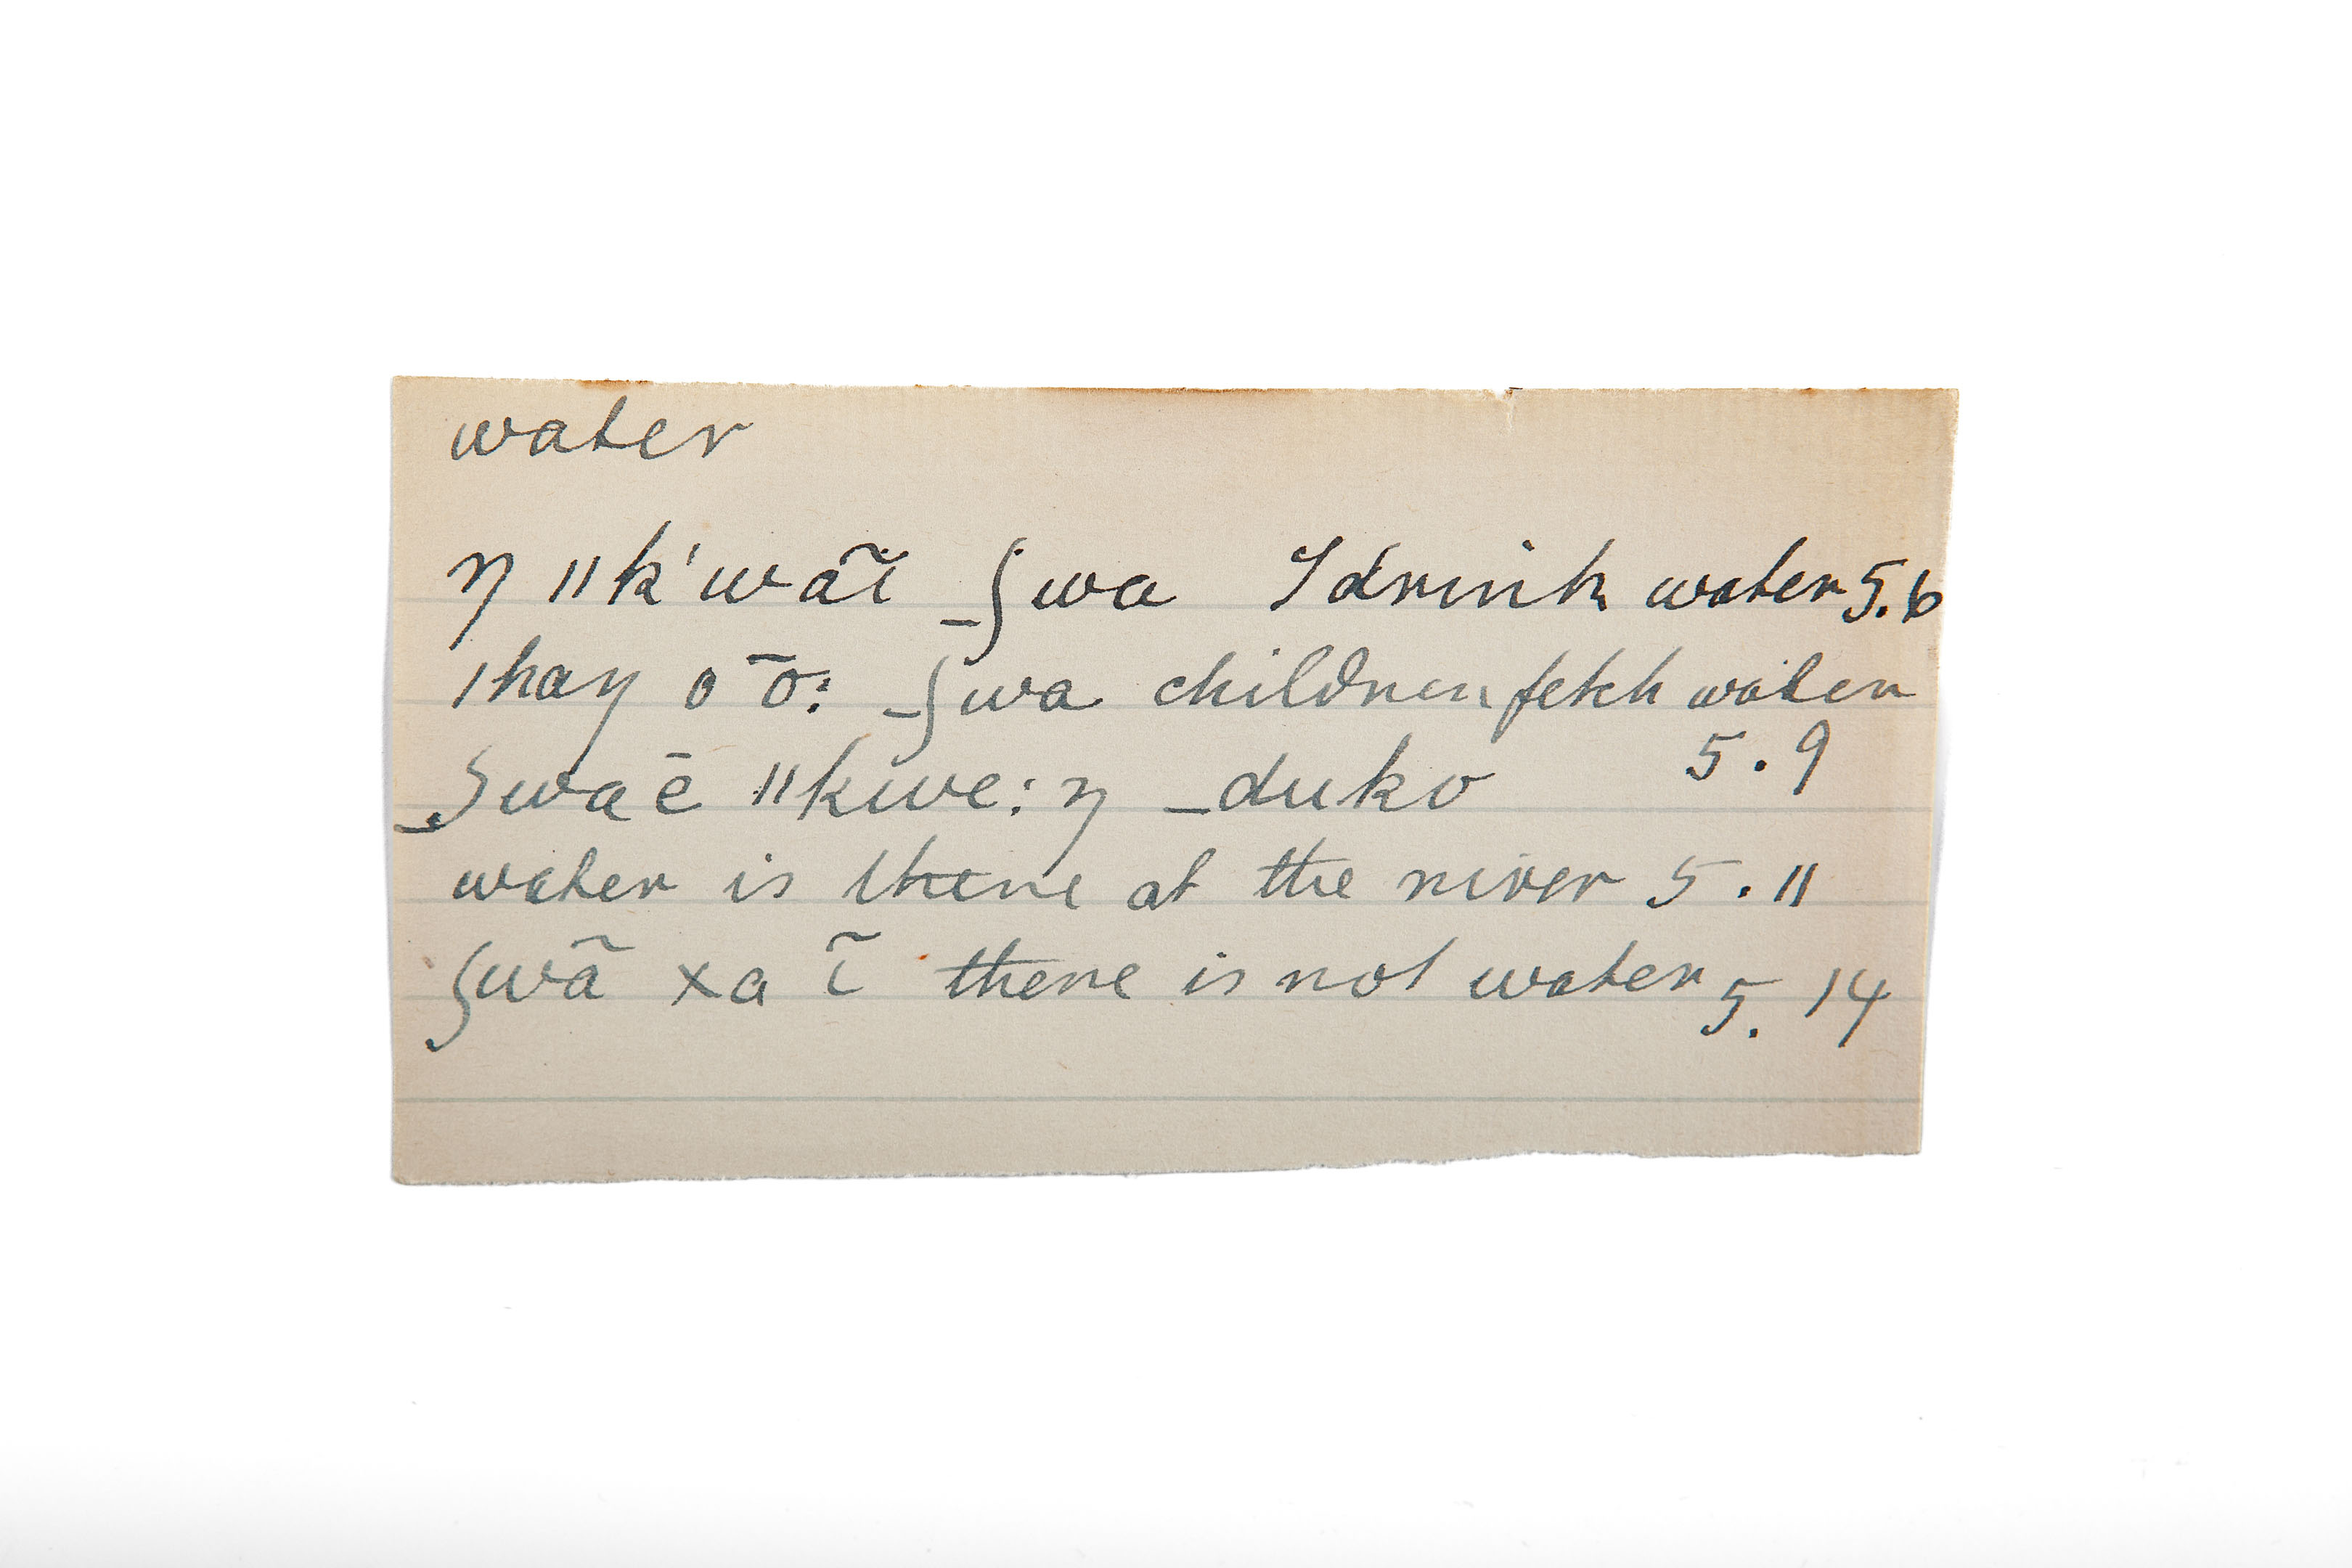 water
ŋ ǁk'wãĩ _ʃwa I drink water 5.6
ǀhaŋ o ō: _ʃwa children fetch water
5.9
_ʃwa ē ǁkwe:ŋ _duko
water is there at the river 5.11
ʃwã xa ĩ there is not water 5.14